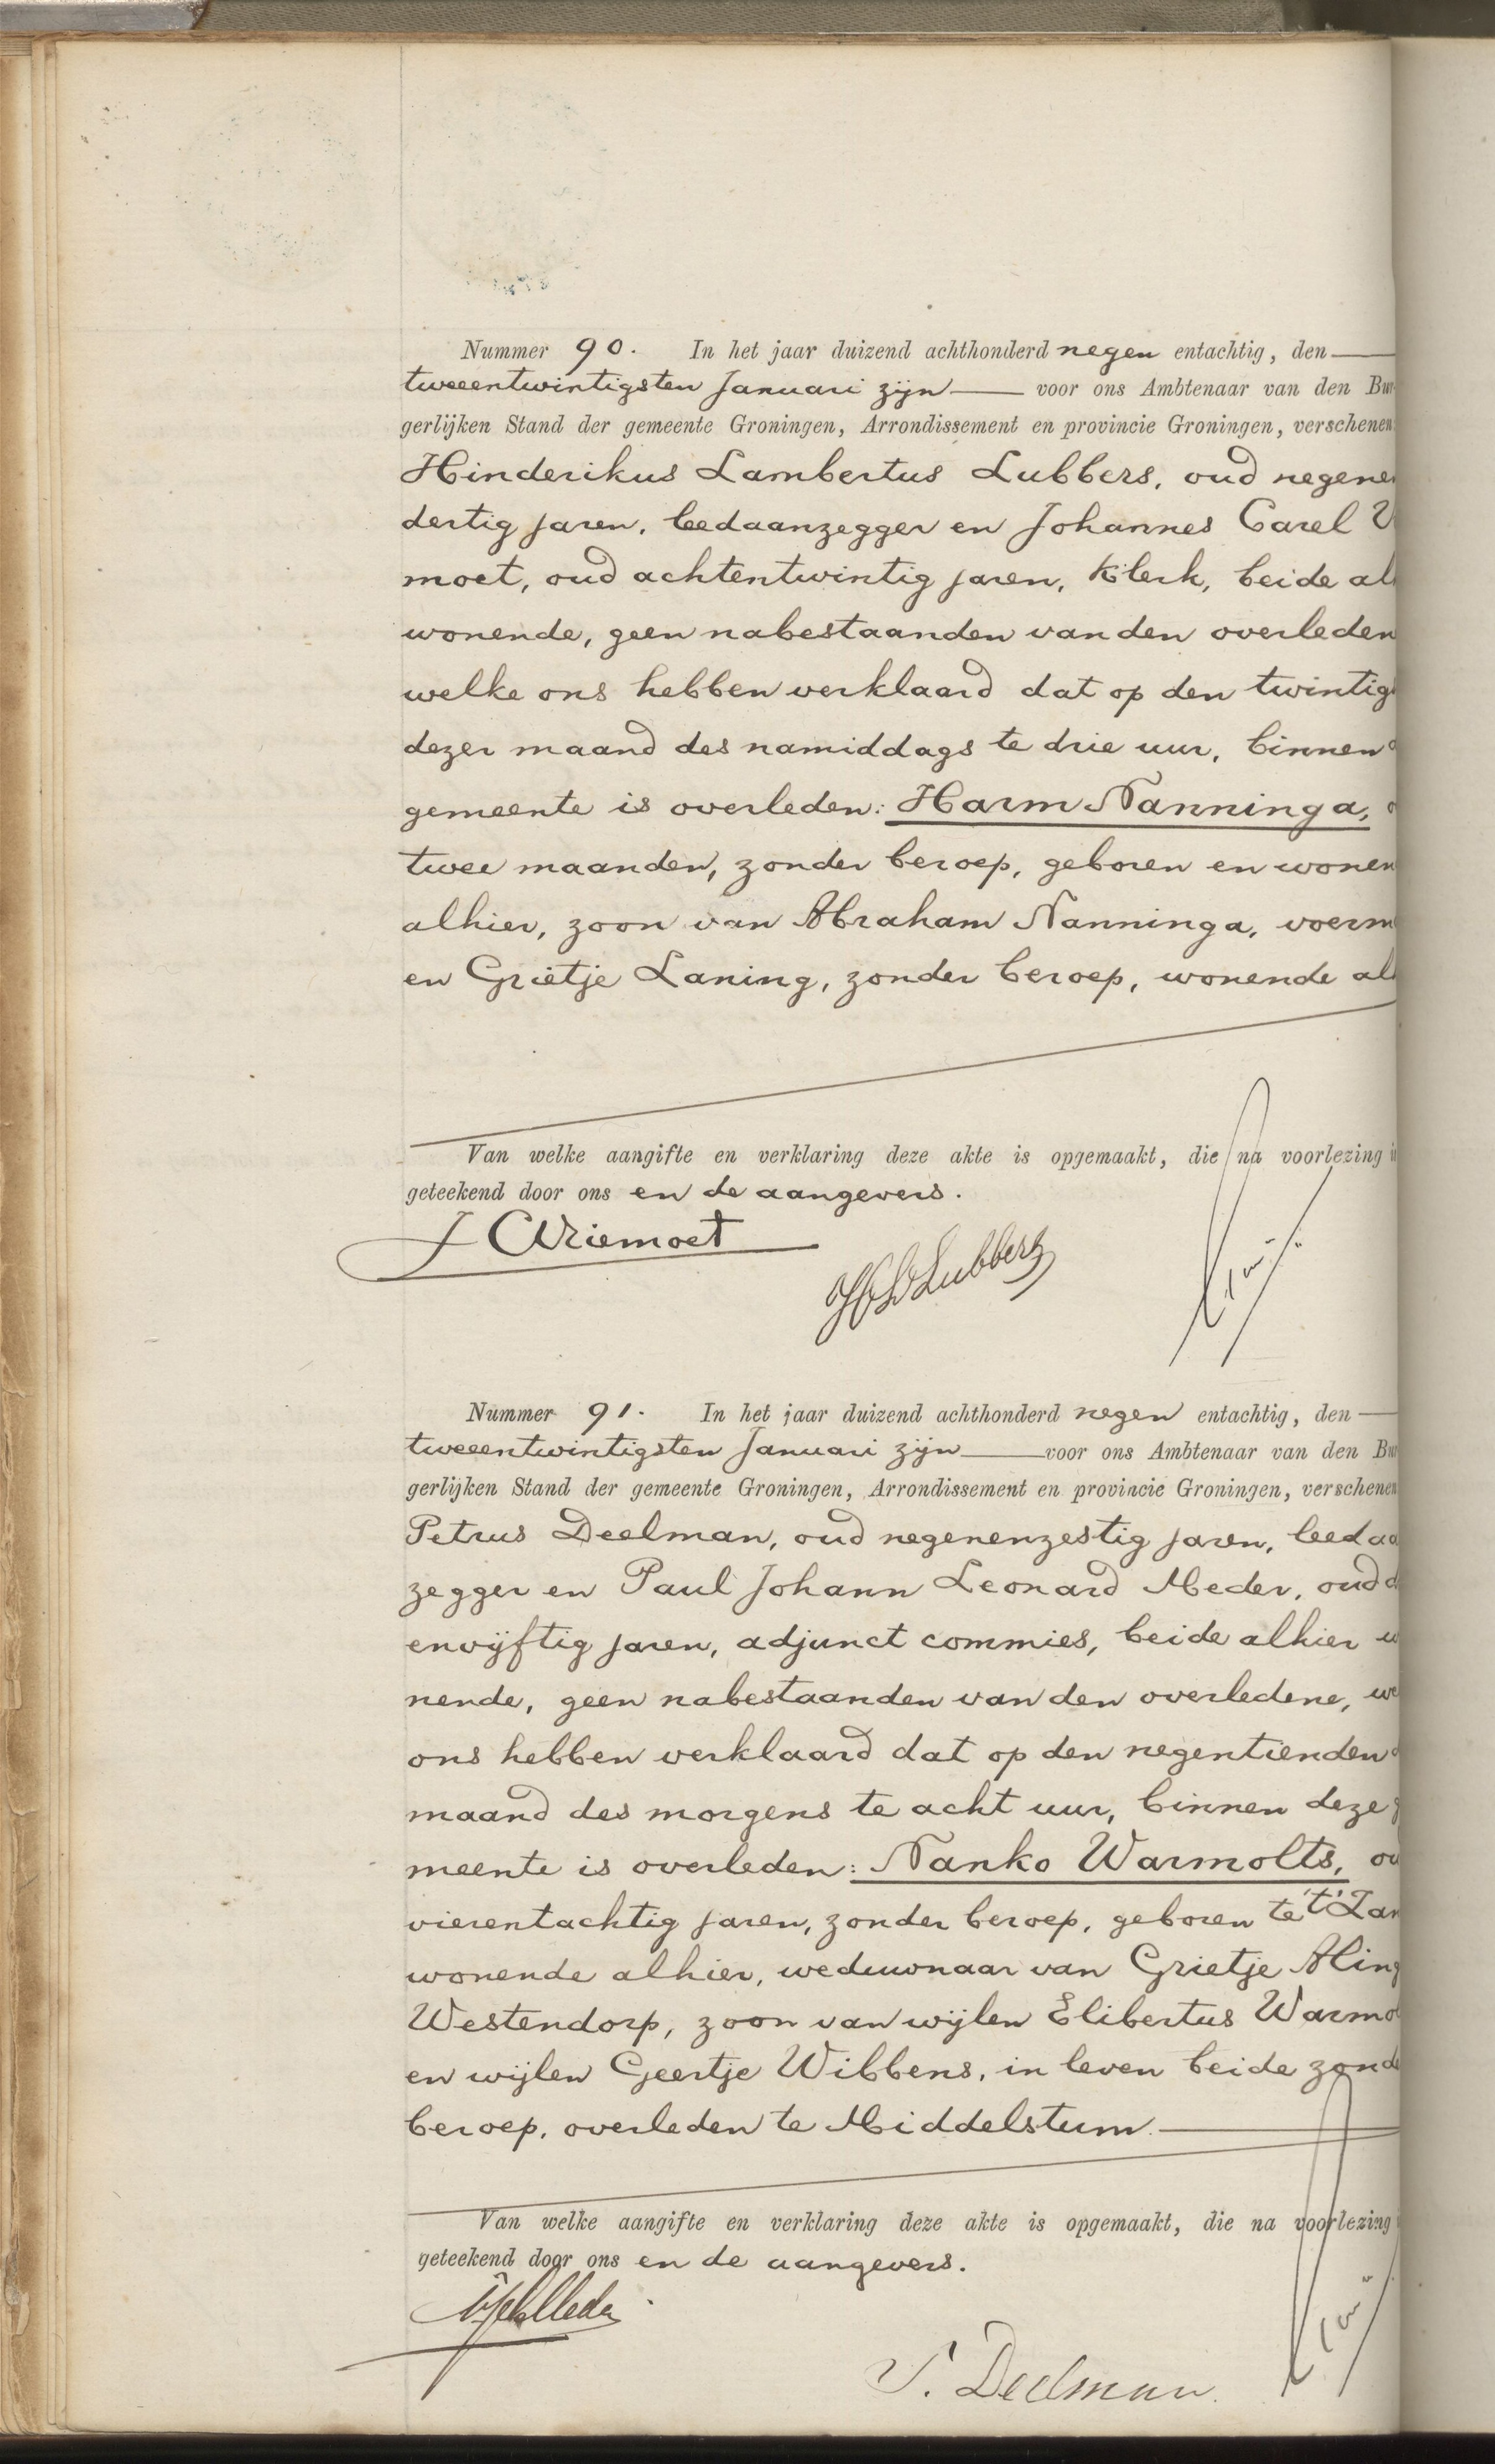 Nummer 90. In het jaar duizend achthonderd negen entachtig, den
tweeentwintigsten Januari zijn voor ons Ambtenaar van den Bur
gerlijken Stand der gemeente Groningen, Arrondissement en provincie Groningen, verschenen
Hinderikus Lambertus Lubbers, oud negenen
dertig jaren, leedaanzegger en Johannes Carel
moet, oud achtentwintig jaren, klerk, beide al
wonende, geen nabestaanden van den overleden
welke ons hebben verklaard dat op den twintigs
dezer maand des namiddags te drie uur, binnen
gemeente is overleden: Harm Nanninga,
twee maanden, zonder beroep, geboren en wonen
alhier, zoon van Abraham Nanninga, voerm
en Grietje Laning, zonder beroep, wonende al
Van welke aangifte en verklaring deze akte is opgemaakt, die na voorlezing
geteekend door ons en de aangevers.
J C Wiemoet
H L Lubbers
Nummer 91. In het jaar duizend achthonderd negen entachtig, den
tweeentwintigsten Januari zijn voor ons Ambtenaar van den Bur
gerlijken Stand der gemeente Groningen, Arrondissement en provincie Groningen, verschenen
Petrus Deelman, oud negenenzestig jaren, leedaa
zegger en Paul Johann Leonard Meder, oud d
envijftig jaren, adjunct commies, beide alhier w
nende, geen nabestaanden van den overledene, we
ons hebben verklaard dat op den negentienden
maand des morgens te acht uur, binnen deze g
meente is overleden: Nanko Warmolts, ou
vierentachtig jaren, zonder beroep, geboren te 't Zan
wonende alhier, weduwnaar van Grietje Aling
Westendorp, zoon van wijlen Elibertus Warmol
en wijlen Geertje Wibbens, in leven beide zonde
beroep, overleden te Middelstum.
Van welke aangifte en verklaring deze akte is opgemaakt, die na voorlezing
geteekend door ons en de aangevers.
P. Deelman